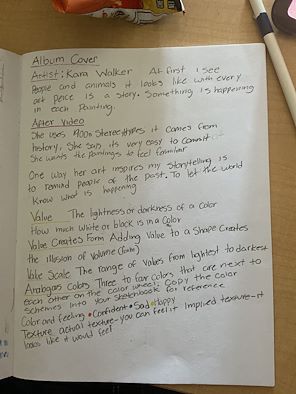 Album Cover
Artist: Kara Walker At first I see
People and animals it looks like with every
art peice is a story. Something is happening
in each Painting.
After Video
She uses 1900s Stereotypes it comes from
history. She says its very easy to commit
She wants the Paintings to feel familiar
One way her art inspires my storytelling is
to remind people of the past. To let the world
Know what is happening
Value The lightness or darkness of a color
How much white or black is in a color
Value Creates Form Adding Value to a Shape Creates
the illusion of Volume (form)
Vale Scale The range of Values from lightest to darkest
Analogous Colors Three to five colors that are next to
each other on the color wheel. Copy the color
schemes into your sketchbook for reference
Color and feeling • Confident • Sad • Happy
Texture actual texture - you can feel it Implied texture - it
looks like it would feel